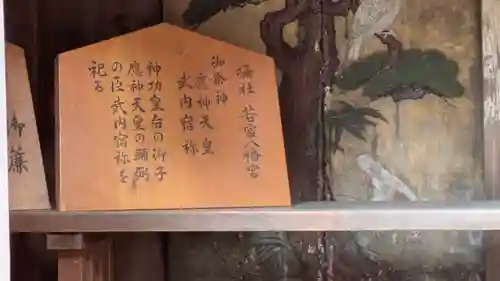 境社 若宮八幡宮
御祭神
應神天皇
武内宿祢
神功皇后の御子
應神天皇の輔弼
の臣武内宿祢を
祀る
御簾